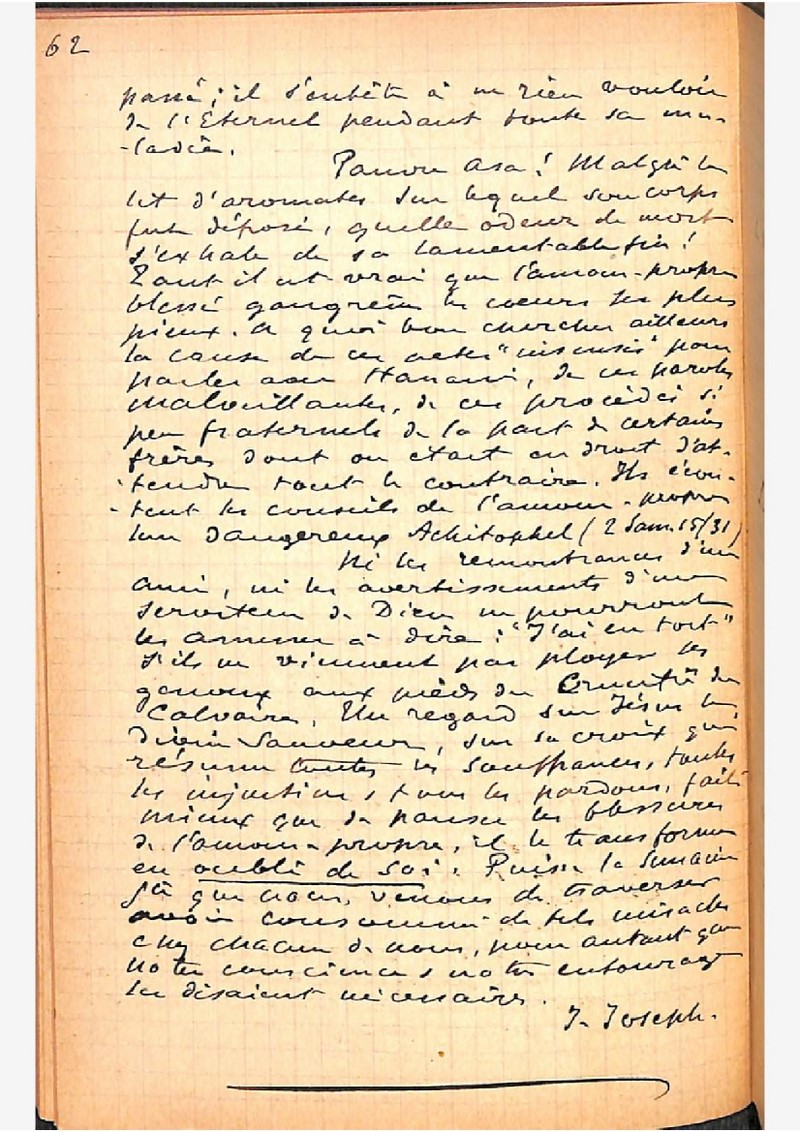 62
passé ; il s'entête à ne rien vouloir
de l'Eternel pendant toute sa ma-
-ladie.
Pauvre Asa ! Malgré le
lit d'aromates sur lequel son corps
fut déposé, quelle odeur de mort
s'exhale de sa lamentable fin !
Tant il est vrai que l'amour-propre
blessé gangrène les coeurs les plus
pieux. A quoi bon chercher ailleurs
la cause de ces actes "insensés" pour
parler avec Hanani, de ces paroles
malveillantes, de ces procédés si
peu fraternels de la part de certains
frères dont on était en droit d'at-
-tendre tout le contraire. Ils écou-
-tent les conseils de l'amour-propre
leur dangereux Achitophel (2 Sam. 15/31)
Ni les remontrances d'un
ami, ni les avertissements d'un
serviteur de Dieu ne pourront
les amener à dire : "J'ai eu tort"
s'ils ne viennent pas ployer les
genoux aux pieds du Crucifié du
Calvaire. Un regard sur Jésus le
divin Sauveur, sur sa croix qui
résume toutes les souffrances, toutes
les injustices, tous les pardons, fait
mieux que de panser les blessures
de l'amour-propre, il le transforme
en oubli de soi. Puisse la semaine
que nous venons de traverser
avoir consommé de tels miracles
chez chacun de nous, pour autant que
notre conscience & notre entourage
les disaient nécessaires.
J. Joseph.